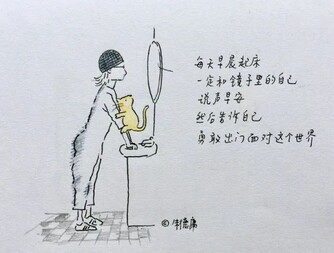 每天早晨起床
一定和镜子里的自己
说声早安
然后告诉自己
勇敢出门面对这个世界
©朱德庸